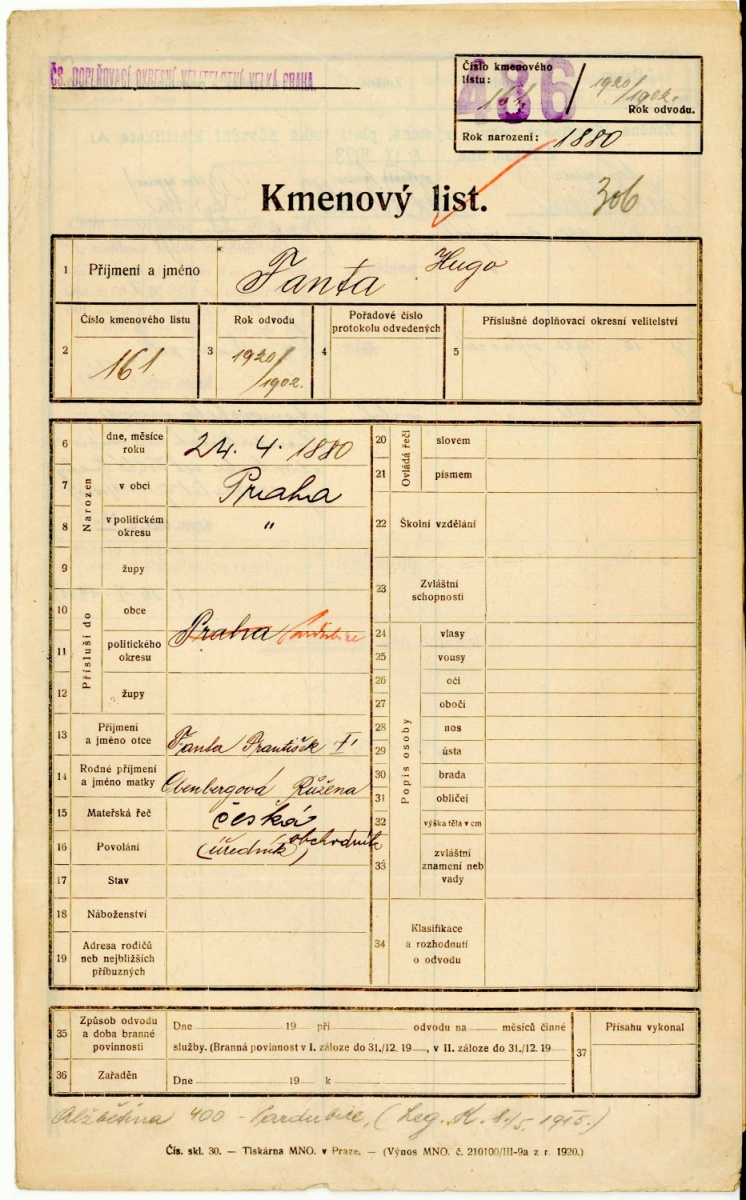 ČS. DOPLŇOVACÍ OKRESNÍ VELITELSTVÍ VELKÁ PRAHA.
Číslo kmenového
listu:
486
161 / 1920/1902.
Rok odvodu.
Rok narození: 1880
Kmenový list.
306
1 Příjmení a jméno Fanta Hugo
2 Číslo kmenového listu
161
3 Rok odvodu
1920/1902.
4 Pořadové číslo
protokolu odvedených
5 Příslušné doplňovací okresní velitelství
Narozen
6 dne, měsíce
roku 24. 4. 1880
7 v obci Praha
8 v politickém
okresu "
9 župy
Přísluší do
10 obce
Praha Pardubice
11 politického
okresu
12 župy
13 Příjmení
a jméno otce Fanta František †
14 Rodné příjmení
a jméno matky Růžena
15 Mateřská řeč česká
16 Povolání (úředník) obchodník
17 Stav
18 Náboženství
19 Adresa rodičů
neb nejbližších
příbuzných
Ovládá řeči
20 slovem
21 písmem
22 Školní vzdělání
23 Zvláštní
schopnosti
Popis osoby
24 vlasy
25 vousy
26 oči
27 obočí
28 nos
29 ústa
30 brada
31 obličej
32 výška těla v cm
33 zvláštní
znamení neb
vady
34 Klasifikace
a rozhodnutí
o odvodu
35 Způsob odvodu
a doba branné
povinnosti
Dne 19 při odvodu na měsíců činné
služby. (Branná povinnost v I. záloze do 31./12. 19 , v II. záloze do 31./12. 19
36 Zařaděn Dne 19 k
37 Přísahu vykonal
Alžbětina 400 - Pardubice, (Leg. K. 1915.)
Čís. skl. 30. — Tiskárna MNO. v Praze. — (Výnos MNO. č. 210100/III-9a z r. 1920.)